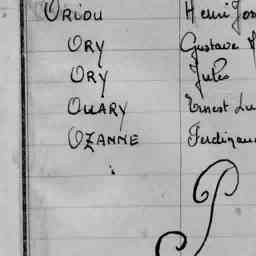 ORIOU Henri Jos
ORY Gustave
ORY Jules
OUARY Ernest Lu
OZANNE Ferdinand
P